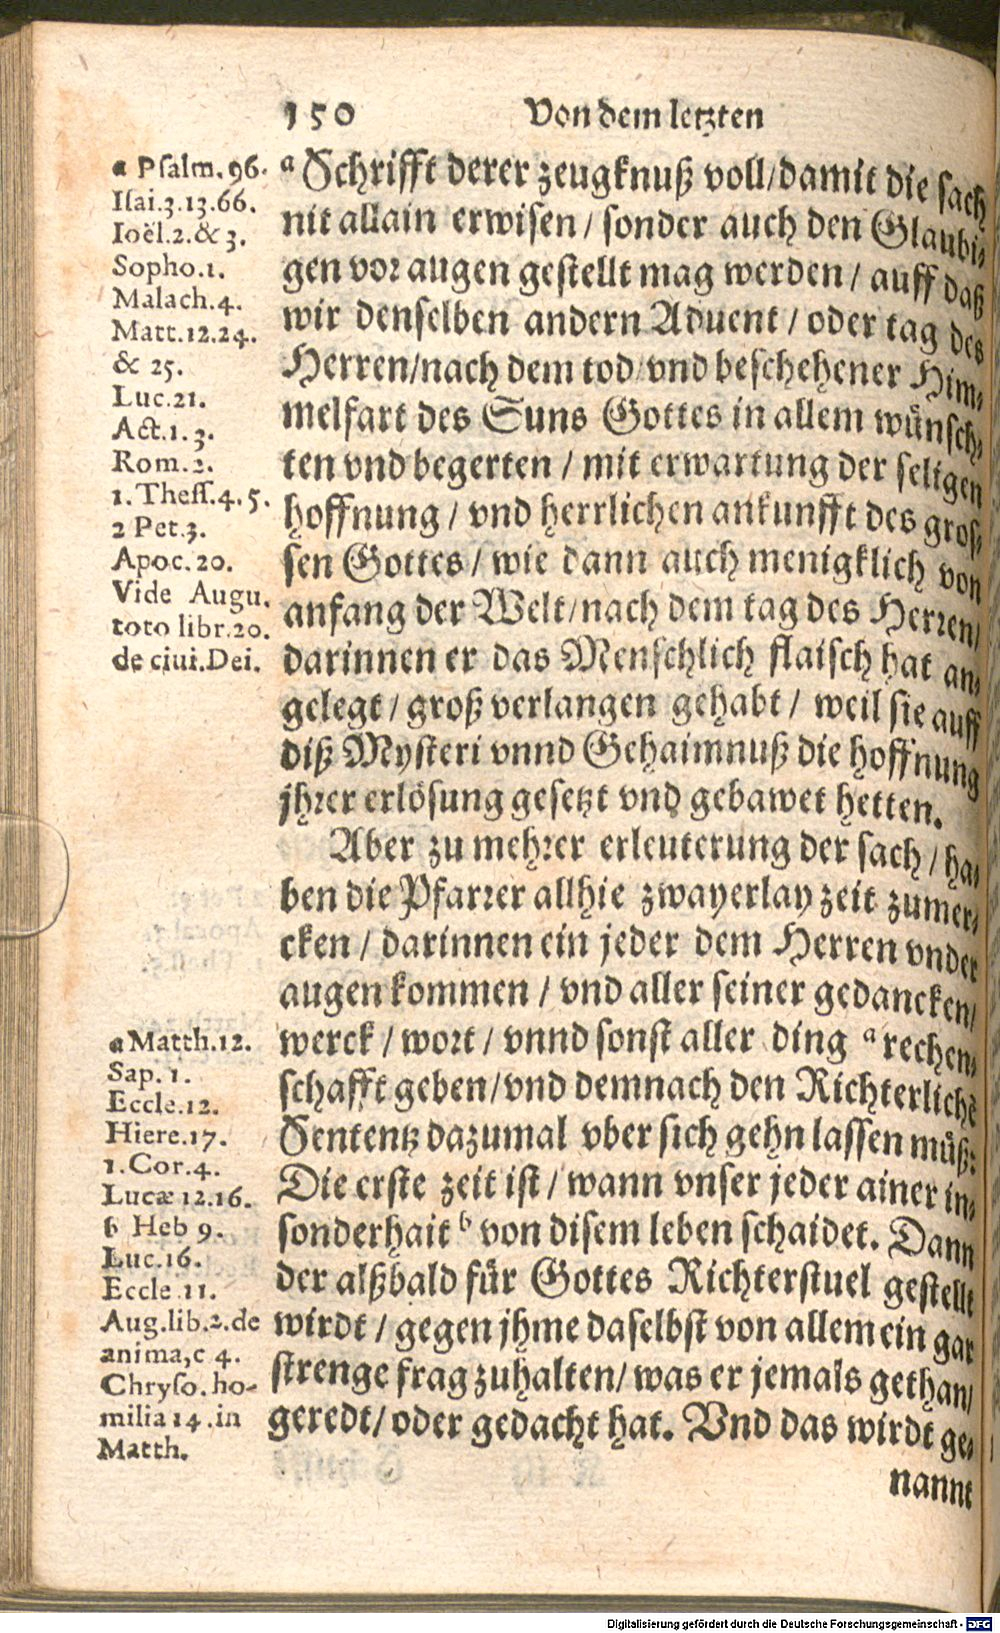 150 Von dem letzten
a Psalm. 96.
Isai.3.13.66.
Ioël.2.& 3.
Sopho.1.
Malach.4.
Matt.12.24.
& 25.
Luc.21.
Act.1.3.
Rom.2.
1.Thess.4.5.
2 Pet.3.
Apoc.20.
Vide Augu.
toto libr.20.
de ciui.Dei.
a Schrifft derer zeugknuß voll/damit die sach
nit allain erwisen/ sonder auch den Glaubi-
gen vor augen gestellt mag werden/ auff daß
wir denselben andern Aduent/ oder tag des
Herren/nach dem tod vnd beschehener Him-
melfart des Suns Gottes in allem wünsch-
ten vnd begerten/ mit erwartung der seligen
hoffnung/ vnd herrlichen ankunfft des gros-
sen Gottes/ wie dann auch menigklich von
anfang der Welt/nach dem tag des Herren/
darinnen er das Menschlich flaisch hat an-
gelegt/ groß verlangen gehabt/ weil sie auff
diß Mysteri vnnd Gehaimnuß die hoffnung
jhrer erlösung gesetzt vnd gebawet hetten.
Aber zu mehrer erleuterung der sach/ ha-
ben die Pfarrer allhie zwayerlay zeit zumer-
cken/ darinnen ein jeder dem Herren vnder
augen kommen/ vnd aller seiner gedancken/
werck/ wort/ vnnd sonst aller ding a rechen-
schafft geben/vnd demnach den Richterlichẽ
Sententz dazumal vber sich gehn lassen müß:
Die erste zeit ist/ wann vnser jeder ainer in-
sonderhait b von disem leben schaidet. Dann
der alßbald für Gottes Richterstuel gestellt
wirdt/ gegen jhme daselbst von allem ein gar
strenge frag zuhalten/ was er jemals gethan/
geredt/ oder gedacht hat. Vnd das wirdt ge-
nannt
a Matth.12.
Sap. 1.
Eccle.12.
Hiere.17.
1.Cor.4.
Lucæ 12.16.
b Heb 9.
Luc.16.
Eccle.11.
Aug.lib.2.de
anima,c 4.
Chryso.ho-
milia 14.in
Matth.
Digitalisierung gefördert durch die Deutsche Forschungsgemeinschaft - DFG